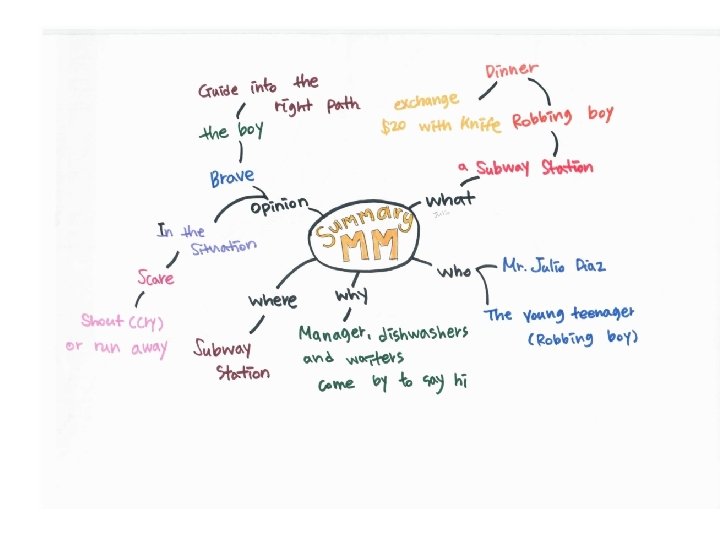 Summary
MM
opinion
Brave
the boy
Guide into the
right path
In the
Situation
Scare
Shout (cry)
or run away
where
Subway
Station
why
Manager, dishwashers
and waiters
come by to say hi
who
Mr. Julio Diaz
The young teenager
(Robbing boy)
what
a Subway Station
Robbing boy
Dinner
exchange
$20 with Knife